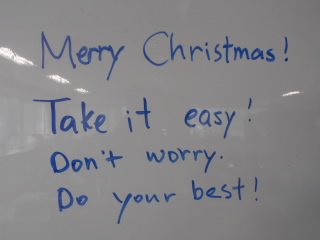 Merry Christmas!
Take it easy!
Don't worry.
Do your best!